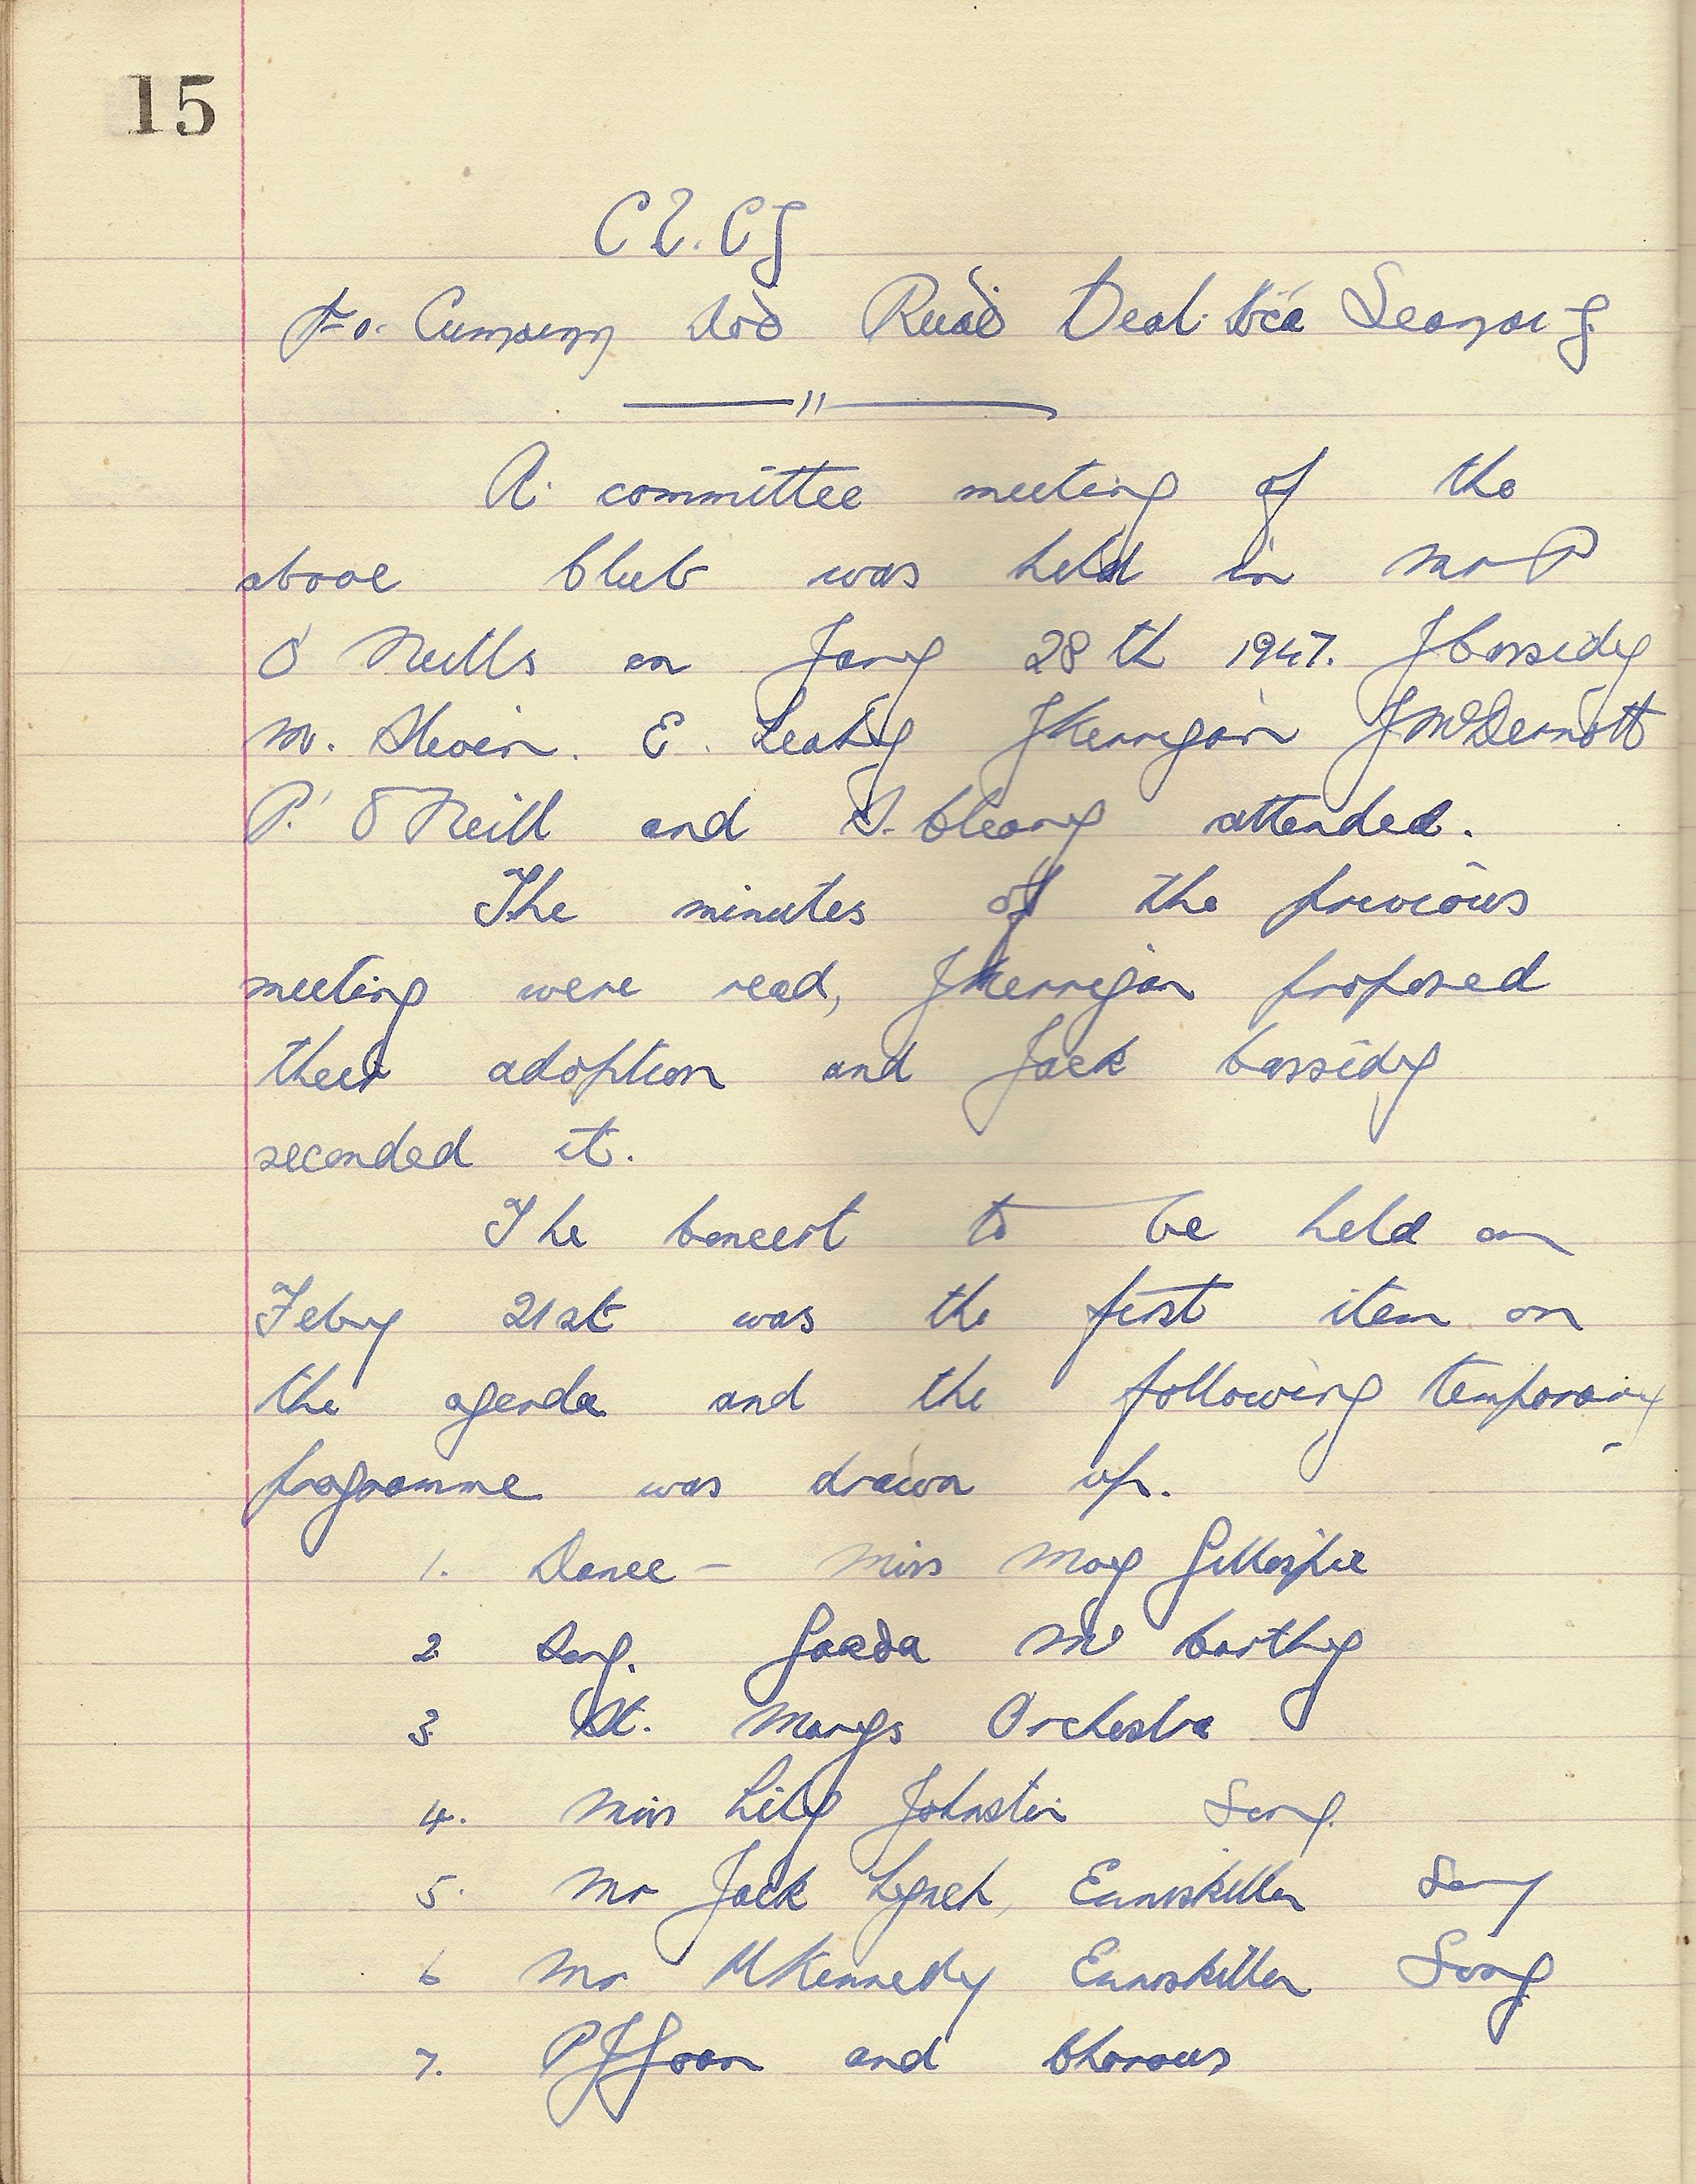 15
C L. C G
Aod Ruad Beal
A committee meeting of the
above Club was held in Mr P
O'Neills on Jany 28th 1947. J Cassidy
M. Slevin. E. Leahy J Kerrigan J McDermott
P. O'Neill and S. Cleary attended.
The minutes of the previous
meeting were read, J Kerrigan proposed
their adoption and Jack Cassidy
seconded it.
The Concert to be held on
Febry 21st was the first item on
the agenda and the following temporary
programme was drawn up.
1. Dance - Miss May Gillespie
2 Song. Garda Mc Carthy
3 St. Marys Orchestra
4. Miss Lily Johnston Song.
5. Mr Jack Lynch, Enniskillen Song
6 Mr M Kennedy Enniskillen Song
7. P J Goan and Chorous